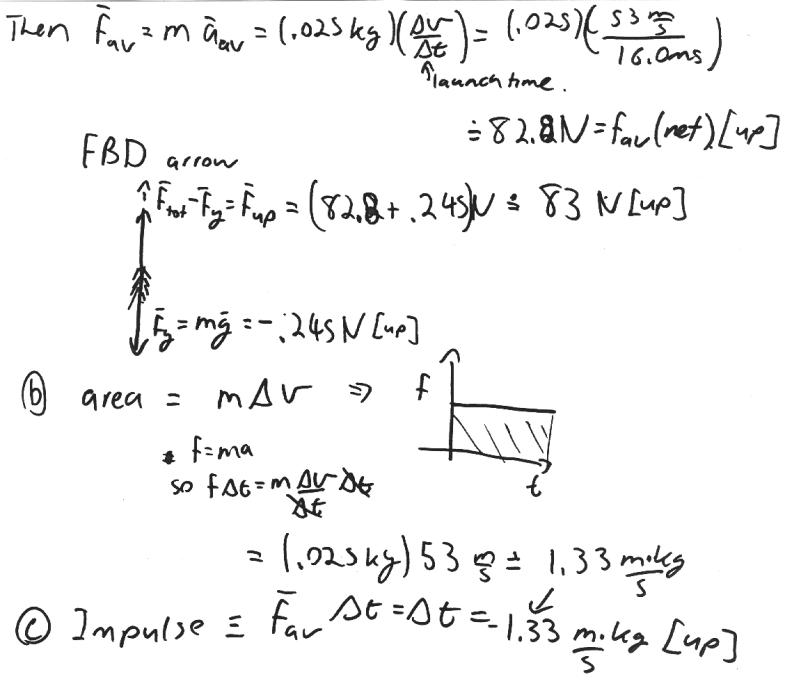 Then F̄av = m āav = (.025 kg)(Δv/Δt) = (.025)(53 m/s / 16.0ms)
↑launch time.
≐ 82.8N = fav(net) [up]
FBD arrow
F̄tot - F̄g = F̄up = (82.8 + .245)N ≐ 83 N [up]
F̄g = mḡ = -.245 N [up]
(b) area = mΔv ⇒ f
f=ma
so fΔt = m Δv/Δt Δt
t
= (.025 kg) 53 m/s ≐ 1.33 m·kg/s
(c) Impulse ≡ F̄av Δt = Δt = 1.33 m·kg/s [up]